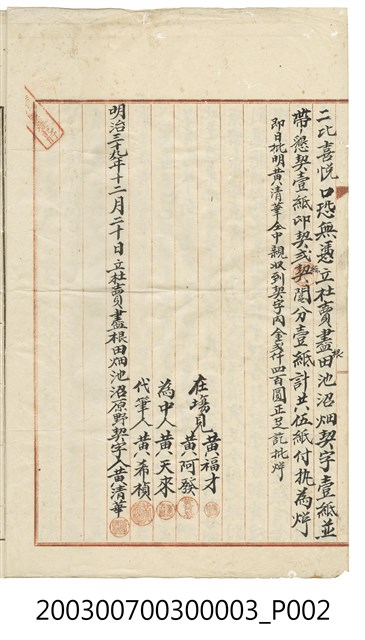 二比喜悅口恐無憑立杜賣盡根田池沼畑契字壹紙並
帶懇契壹紙印契貳契鬮分壹紙計共伍紙付執為炤
即日批明黃清華仝中親收到契字內金貳仟四百圓正足訖批炤
在塲見黃福才
黃阿發
為中人黃天來
代筆人黃希楨
明治三十九年十二月二十日立杜賣盡根田畑池沼原野契字人黃清華
200300700300003_P002